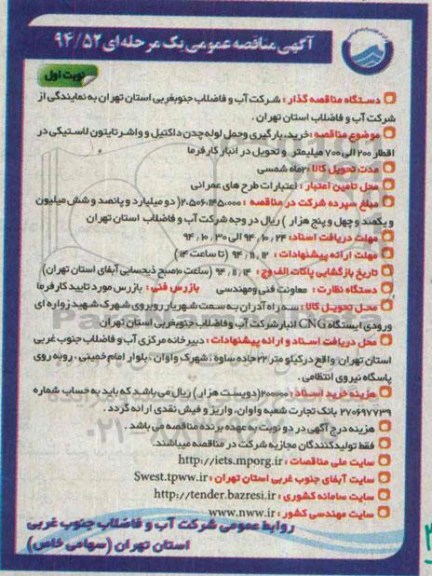 آگهی مناقصه عمومی یک مرحله‌ای ۹۴/۵۲
نوبت اول
دستگاه مناقصه گذار : شرکت آب و فاضلاب جنوبغربی استان تهران به نمایندگی از
شرکت آب و فاضلاب استان تهران .
موضوع مناقصه : خرید، بارگیری وحمل لوله چدن داکتیل و واشر تایتون لاستیکی در
اقطار ۲۰۰ الی ۷۰۰ میلیمتر و تحویل در انبار کارفرما
مدت تحویل کالا : ۲ ماه شمسی
محل تأمین اعتبار : اعتبارات طرح های عمرانی
مبلغ سپرده شرکت در مناقصه : ۲.۵۰۶.۱۴۵.۰۰۰ ( دو میلیارد و پانصد و شش میلیون
و یکصد و چهل و پنج هزار ) ریال در وجه شرکت آب و فاضلاب استان تهران
مهلت دریافت اسناد : ۲۴ / ۱۰ / ۹۴ الی ۳۰ / ۱۰ / ۹۴
مهلت ارائه پیشنهادات : ۱۲ / ۱۱ / ۹۴ (تا ساعت ۱۴)
تاریخ بازگشایی پاکات الف و ج : ۱۴ / ۱۱ / ۹۴ (ساعت ۱۰صبح ذیحسابی آبفای استان تهران)
دستگاه نظارت : معاونت فنی ومهندسی بازرس فنی : بازرس مورد تایید کارفرما
محل تحویل کالا : سه راه آدران به سمت شهریار روبروی شهرک شهید زواره ای
ورودی ایستگاه CNG انبار شرکت آب وفاضلاب جنوبغربی استان تهران
محل دریافت اسناد و ارائه پیشنهادات : دبیرخانه مرکزی آب و فاضلاب جنوب غربی
استان تهران واقع در کیلو متر ۲۲ جاده ساوه ، شهرک واوان ، بلوار امام خمینی ، روبه روی
پاسگاه نیروی انتظامی .
هزینه خرید اسناد : ۲۰۰۰۰۰ (دویست هزار) ریال می باشد که باید به حساب شماره
۲۷۰۶۹۷۷۳۹ بانک تجارت شعبه واوان، واریز و فیش نقدی ارائه گردد .
هزینه درج آگهی در دو نوبت به عهده برنده مناقصه می باشد .
فقط تولیدکنندگان مجاز به شرکت در مناقصه میباشند.
سایت ملی مناقصات : http://iets.mporg.ir
سایت آبفای جنوب غربی استان تهران : Swest.tpww.ir
سایت سامانه کشوری : http://tender.bazresi.ir
سایت مهندسی کشور : www.nww.ir
روابط عمومی شرکت آب و فاضلاب جنوب غربی
استان تهران (سهامی خاص)